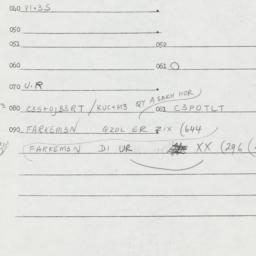 040 VI+3S
050
051 052
060 061 O
070 U.R
080 C3S+OJBERT / KUC+M3 QY A SACH HOR 081 C3POTLT
090 FARKEM3N QZOL ER ZIX (644
FARKEM3N DI UR XX (296 (